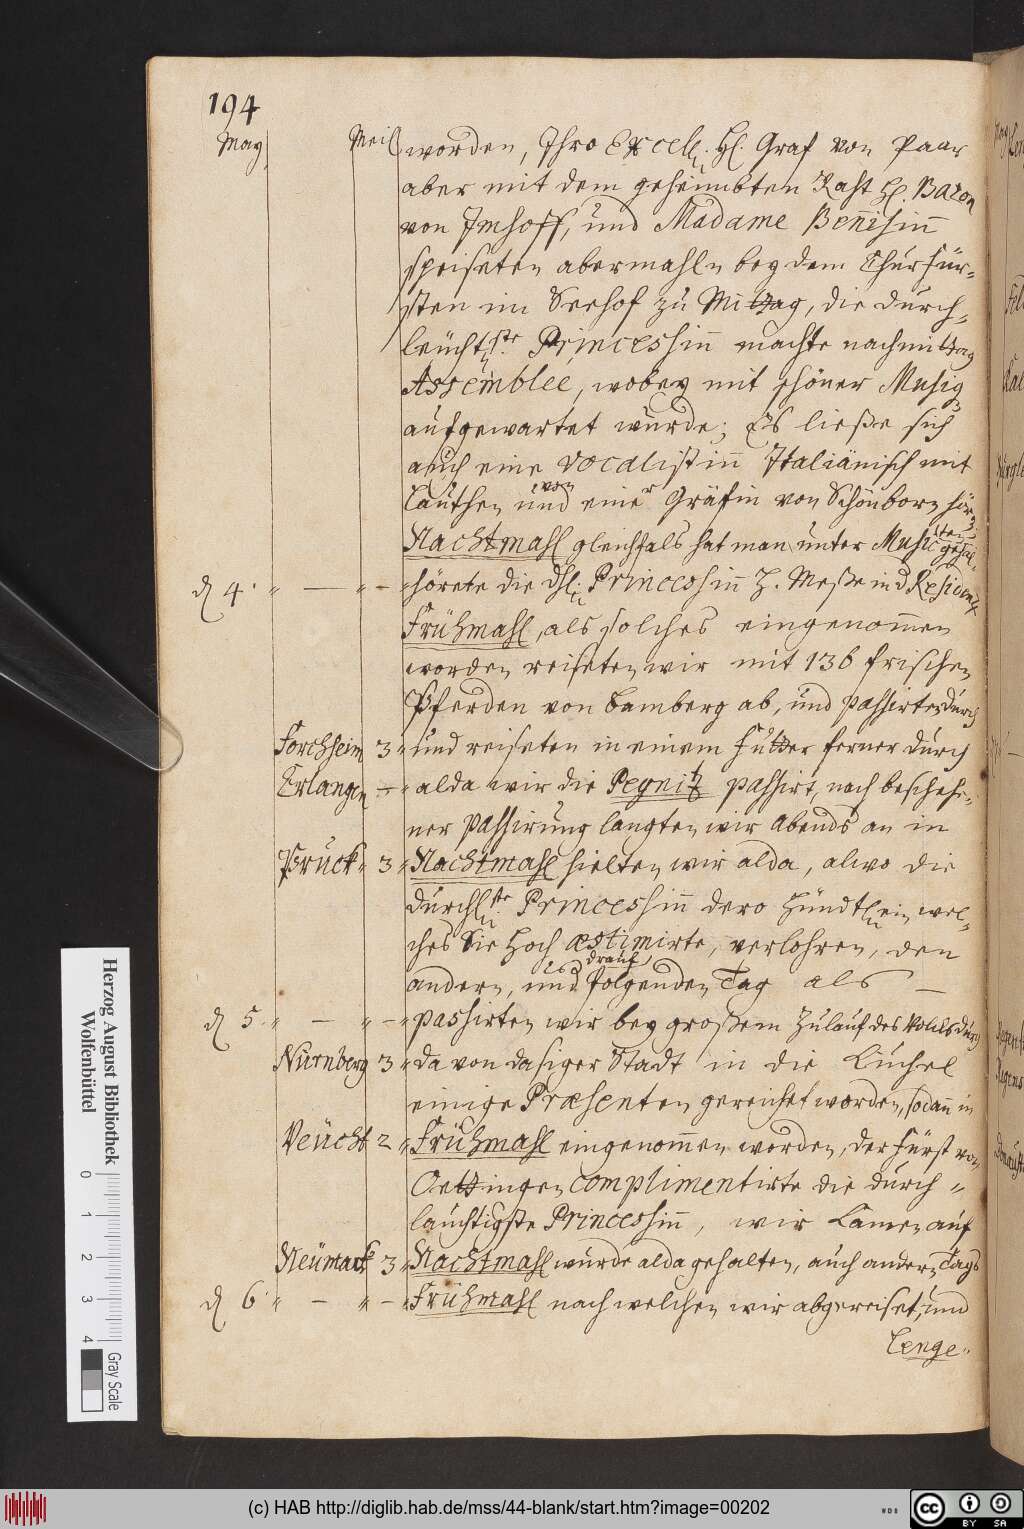 194
May Meil worden, Ihro Excell: H. Graf von Paar
aber mit dem geheimbten Raht H. Baron
von Imhoff, und Madame Bennisinn
speiseten abermahln bey dem Churfür-
sten im Seehof zu Mittag, die durch-
leüchtste Princessinn machte nachmittag
Assemblee, wobey mit schöner Musig
aufgewartet wurde; Es ließe sich
auch eine vocalistinn Italiänisch mit
Lauthen und von einer Gräfin von Schönborn hör
Nachtmahl gleichfals hat man unter Music gehal-
ten
d 4. " — " — " hörete die dhl: Princessinn H. Meße in d Residentz
Frühmahl, als solches eingenommen
worden reiseten wir mit 136 frischen
Pferden von Bamberg ab, und passirten durch
Forchheim 3 " und reiseten in einem Futter ferner durch
Erlangen — " alda wir die Pegnitz passirt, nach beschehe-
ner passirung langten wir Abends an in
Pruck " 3 " Nachtmahl hielten wir alda, alwo die
durchlste Princessinn dero Hündtl: ein wel-
ches Sie Hoch æstimirte, verlohren, den
andern, und drauf folgenden Tag als —
d 5. " — " — " passirten wir bey großem Zulauf des Volcks durch
Nürnberg 3 " da von dasiger Stadt in die Kuchel
einige Præsenten gereichet worden, sodann in
Veücht 2 " Frühmahl eingenommen worden, der Fürst von
Oettingen complimentirte die durch-
lauchtigste Princessinn, wir kamen auf
Neümark 3 " Nachtmahl wurde alda gehalten, auch andern Tags
d 6. " — " — " Frühmahl nach welchen wir abgereiset, und
Lenge-
Herzog August Bibliothek
Wolfenbüttel
0 1 2 3 4
Gray Scale
(c) HAB http://diglib.hab.de/mss/44-blank/start.htm?image=00202
WDB
cc BY SA